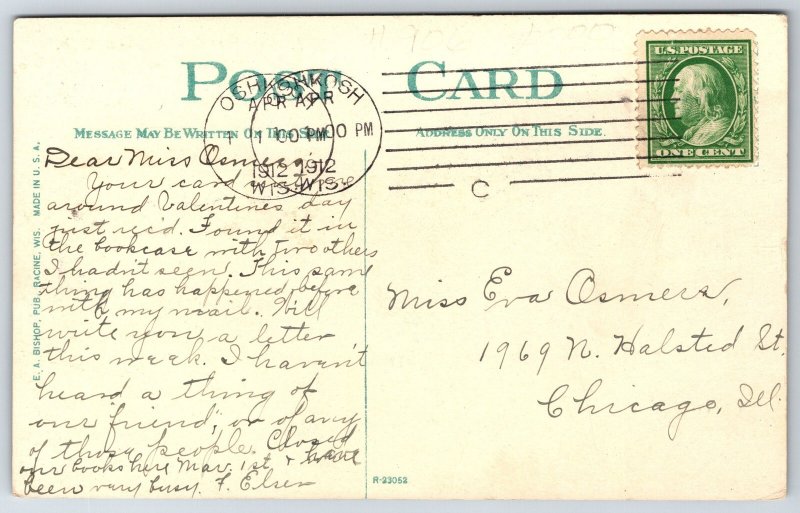 POST CARD
U.S. POSTAGE
ONE CENT
OSHKOSH OSHKOSH
APR APR
1 00 PM 00 PM
1912 1912
WIS. WIS.
C
MESSAGE MAY BE WRITTEN ON THIS SIDE
ADDRESS ONLY ON THIS SIDE.
Dear Miss Osmers;
Your card
around Valentines day
just rec'd. Found it in
the bookcase with two others
I hadn't seen. This same
thing has happened before
with my mail. Will
write you a letter
this week. I haven't
heard a thing of
our "friend", or of any
of those people. Closed
our books here Mar. 1st, & have
been very busy. F. Elser
Miss Eva Osmers,
1969 N. Halsted St.
Chicago, Ill.
E. A. BISHOP, PUB., RACINE, WIS. MADE IN U.S.A.
R-23052